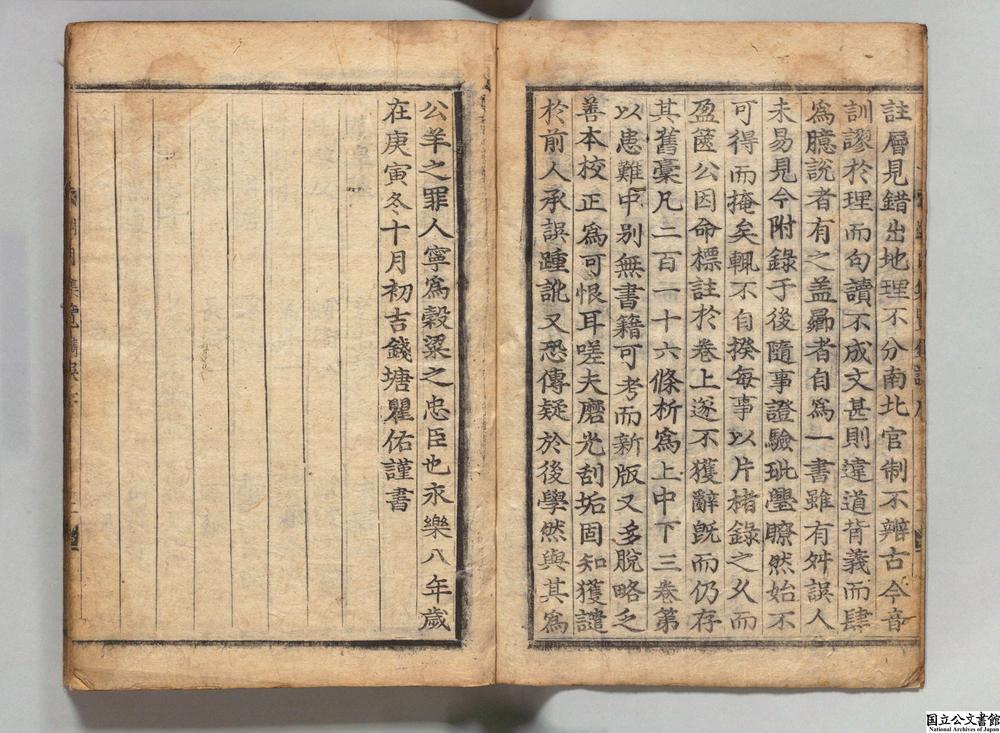 註層見錯出地理不分南北官制不辯古今音
訓謬於理而句讀不成文甚則違道背義而肆
爲臆說者有之盖曏者自爲一書雖有舛誤人
未易見今附錄于後隨事證驗玼舋瞭然始不
可得而掩矣輒不自揆每事以片楮錄之久而
盈篋公因命標註於卷上遂不獲辭旣而仍存
其舊藁凡二百一十六條析爲上中下三卷第
以患難中别無書籍可考而新版又多脫略乏
善本校正爲可恨耳嗟夫磨光刮垢固知獲譴
於前人承誤踵訛又恐傳疑於後學然與其爲
公羊之罪人寧爲穀粱之忠臣也永樂八年歲
在庚寅冬十月初吉錢塘瞿佑謹書
集覽鐫誤序
国立公文書館
National Archives of Japan